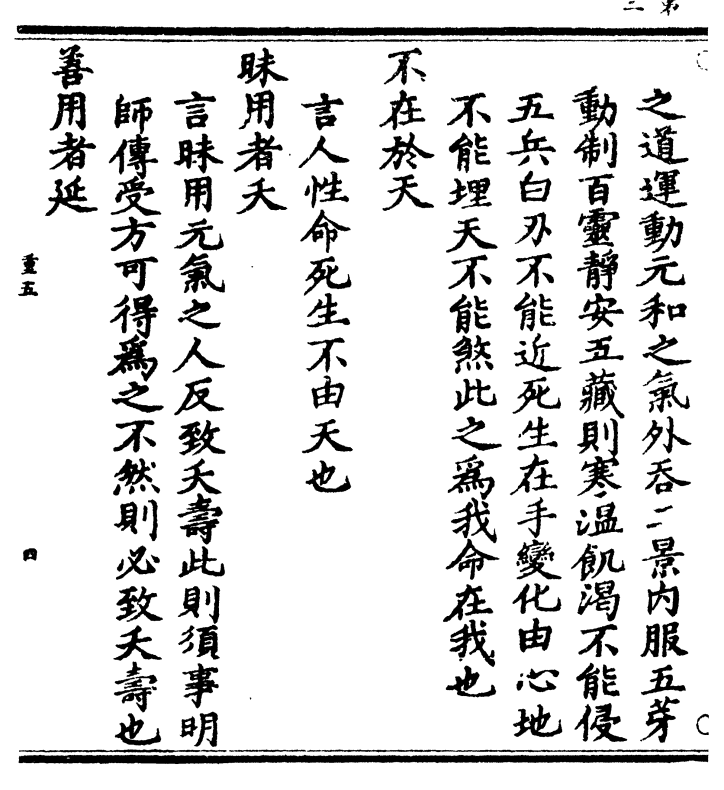 第三
之道運動元和之氣外吞二景内服五芽
動制百靈靜安五藏則寒温飢渴不能侵
五兵白刃不能近死生在手變化由心地
不能埋天不能煞此之爲我命在我也
不在於天
言人性命死生不由天也
昧用者夭
言昧用元氣之人反致夭壽此則須事明
師傳受方可得爲之不然則必致夭壽也
善用者延
重五
四